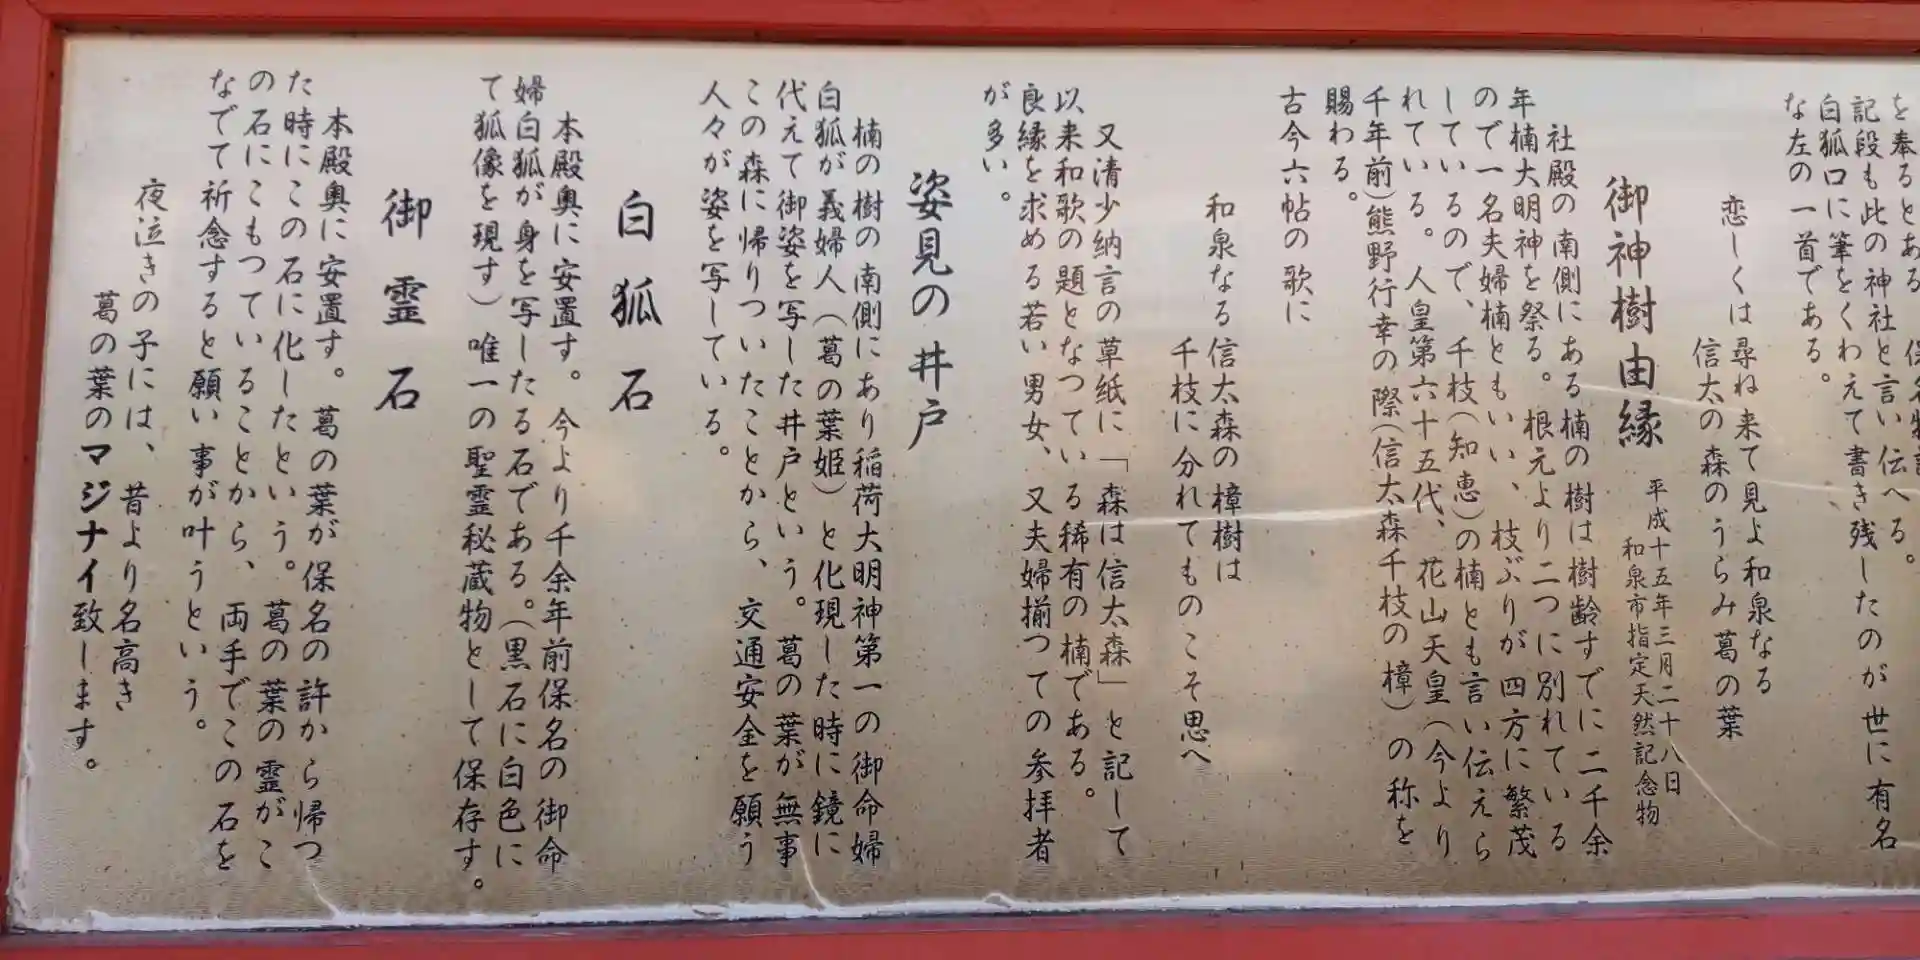 を奉るとある
保名物語
記段も此の神社と言い伝へる。
白狐口に筆をくわえて書き残したのが世に有名
な左の一首である。
恋しくは尋ね来て見よ和泉なる
信太の森のうらみ葛の葉
御神樹由縁
平成十五年三月二十八日
和泉市指定天然記念物
社殿の南側にある楠の樹は樹齢すでに二千余
年楠大明神を祭る。根元より二つに別れている
ので一名夫婦楠ともいい、枝ぶりが四方に繁茂
しているので、千枝(知恵)の楠とも言い伝えら
れている。人皇第六十五代、花山天皇(今より
千年前)熊野行幸の際(信太森千枝の樟)の称を
賜わる。
古今六帖の歌に
和泉なる信太森の樟樹は
千枝に分れてものこそ思へ
又清少納言の草紙に「森は信太森」と記して
以来和歌の題となつている稀有の楠である。
良縁を求める若い男女、又夫婦揃つての参拝者
が多い。
姿見の井戸
楠の樹の南側にあり稲荷大明神第一の御命婦
白狐が義婦人(葛の葉姫)と化現した時に鏡に
代えて御姿を写した井戸という。葛の葉が無事
この森に帰りついたことから、交通安全を願う
人々が姿を写している。
白狐石
本殿奥に安置す。今より千余年前保名の御命
婦白狐が身を写したる石である。(黒石に白色に
て狐像を現す)唯一の聖霊秘蔵物として保存す。
御霊石
本殿奥に安置す。葛の葉が保名の許から帰つ
た時にこの石に化したという。葛の葉の霊がこ
の石にこもつていることから、両手でこの石を
なでて祈念すると願い事が叶うという。
夜泣きの子には、昔より名高き
葛の葉のマジナイ致します。